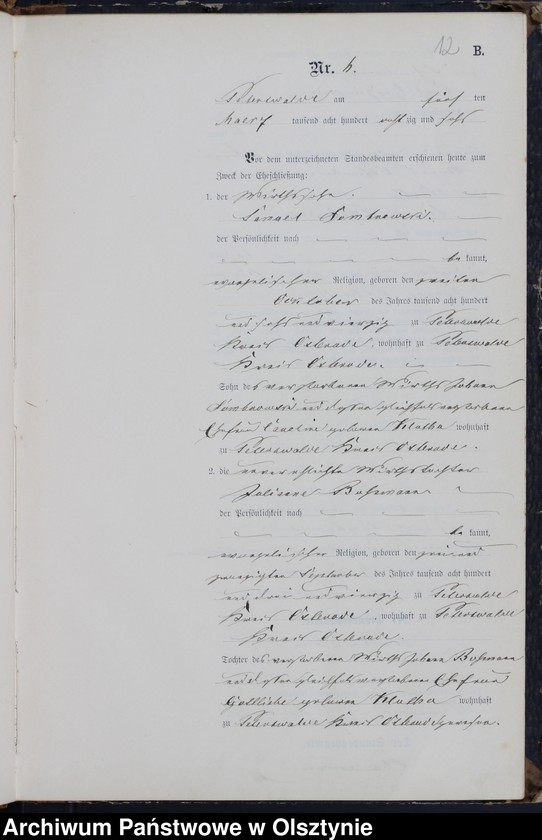 12 B.
Nr. 4.
Peterswalde am fünf ten
Maerz tausend acht hundert acht zig und sechs
Vor dem unterzeichneten Standesbeamten erschienen heute zum
Zweck der Eheschließung:
1. der Wirthssohn
Dombrowski.
der Persönlichkeit nach
be kannt,
evangelischer Religion, geboren den zweiten
October des Jahres tausend acht hundert
und sechs und vierzig zu Peterswalde
Kreis Osterode, wohnhaft zu Peterswalde
Kreis Osterode.
Sohn des verstorbenen Wirths Johann
Dombrowski und dessen gleichfalls verstorbenen
Ehefrau Caroline geborenen wohnhaft
zu Peterswalde Kreis Osterode.
2. die unverehelichte Wirthstochter
Juliane
der Persönlichkeit nach
be kannt,
evangelischer Religion, geboren den und
zwanzigsten September des Jahres tausend acht hundert
und drei und vierzig zu Peterswalde
Kreis Osterode, wohnhaft zu Peterswalde
Kreis Osterode.
Tochter des verstorbenen Wirths Johann
und dessen gleichfalls verstorbenen Ehefrau
Gottliebe geborenen wohnhaft
zu Peterswalde Kreis
Archiwum Państwowe w Olsztynie